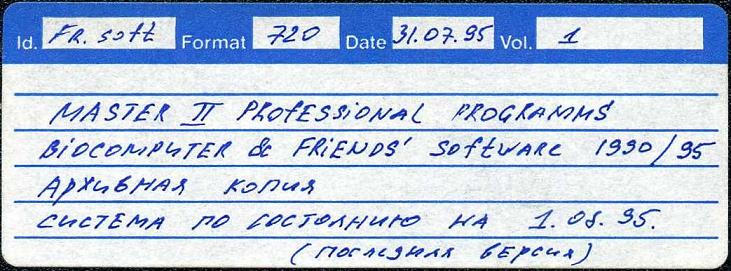 Id. FR. soft Format 720 Date 31.07.95 Vol. 1
MASTER II PROFESSIONAL PROGRAMMS
BIOCOMPUTER & FRIENDS' SOFTWARE 1990/95
АРХИВНАЯ КОПИЯ
СИСТЕМА ПО СОСТОЯНИЮ НА 1.08.95.
(ПОСЛЕДНЯЯ ВЕРСИЯ)